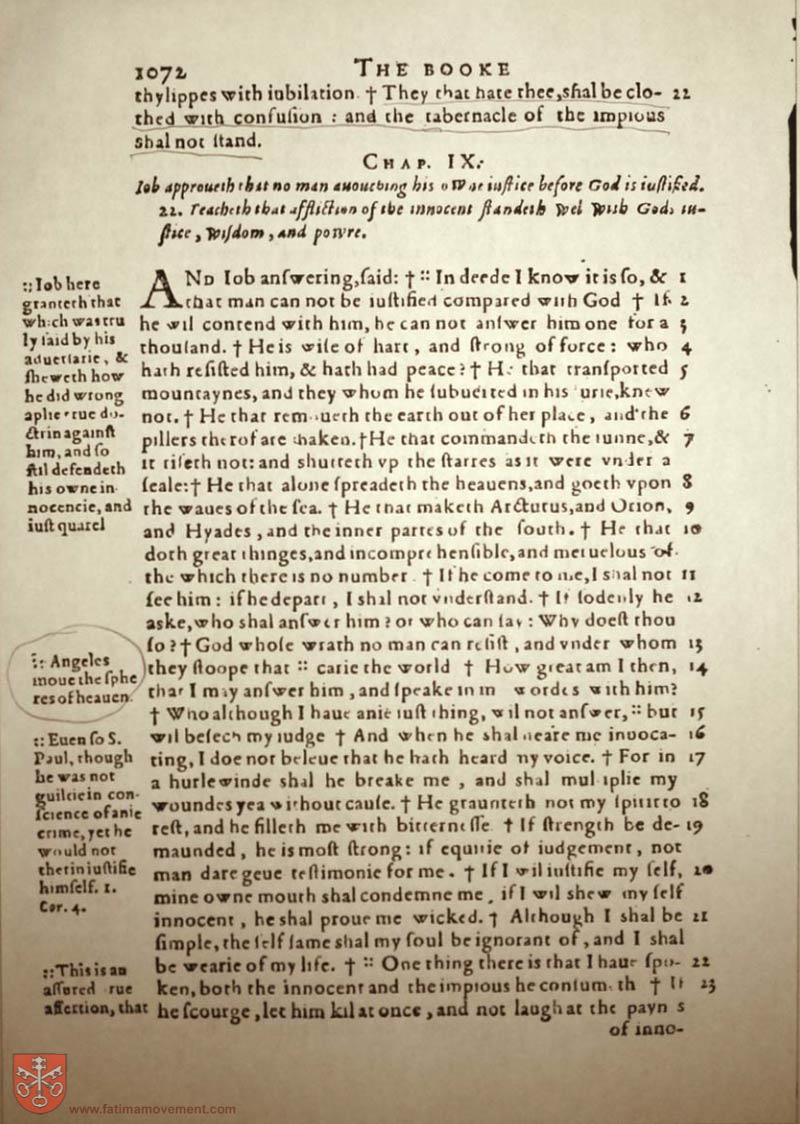 1072 THE BOOKE
thylippes with iubilation. † They that hate thee, ſhal be clo- 22
thed with confuſion : and the tabernacle of the impious
shal not ſtand.
CHAP. IX.
Iob approueth that no man auouching his owne iuſtice before God is iuſtified.
22. Teacheth that affliction of the innocent ſtandeth wel with Gods iu-
ſtice, wiſdom, and powre.
:: Iob here
granteth that
which was tru
ly ſaid by his
aduerſarie, &
ſheweth how
he did wrong
aplie true do-
ctrin againſt
him, and ſo
ſtil defendeth
his owne in-
nocencie, and
iuſt quarel
AND Iob anſwering, ſaid: † :: In deede I know it is ſo, & 1
that man can not be iuſtified compared with God † If 2
he wil contend with him, he can not anſwer him one for a 3
thouſand. † He is wiſe of hart, and ſtrong of force: who 4
hath reſiſted him, & hath had peace? † He that tranſported 5
mountaynes, and they whom he ſubuerted in his furie, knew
not. † He that remoueth the earth out of her place, and the 6
pillers therof are shaken. † He that commandeth the ſunne, & 7
it riſeth not: and shutteth vp the ſtarres as it were vnder a
ſeale: † He that alone ſpreadeth the heauens, and goeth vpon 8
the waues of the ſea. † He that maketh Arcturus, and Orion, 9
and Hyades, and the inner partes of the ſouth. † He that 10
doth great thinges, and incomprehenſible, and meruelous of
the which there is no number. † If he come to me, I shal not 11
ſee him: if he depart, I shal not vnderſtand. † If ſodenly he 12
aske, who shal anſwer him? or who can ſay: Why doeſt thou
ſo? † God whoſe wrath no man can reſiſt, and vnder whom 13
:: Angeles
moue the ſphe
res of heauen.
they ſtoope that :: carie the world † How great am I then, 14
that I may anſwer him, and ſpeake in wordes with him?
† Who although I haue anie iuſt thing, wil not anſwer, :: but 15
wil beſech my iudge † And when he shal heare me inuoca- 16
ting, I doe not beleue that he hath heard my voice. † For in 17
a hurlewinde shal he breake me, and shal multiplie my
woundes yea without cauſe. † He graunteth not my ſpirit to 18
reſt, and he filleth me with bitterneſſe † If ſtrength be de- 19
maunded, he is moſt ſtrong: if equitie of iudgement, not
man dare geue teſtimonie for me. † If I wil iuſtifie my ſelf, 20
mine owne mouth shal condemne me, if I wil shew my ſelf
innocent, he shal proue me wicked. † Although I shal be 21
ſimple, the ſelf ſame shal my ſoul be ignorant of, and I shal
:: Euen ſo S.
Paul, though
he was not
guiltie in con-
ſcience of anie
crime, yet he
would not
therin iuſtifie
himſelf. 1.
Cor. 4.
be wearie of my life. † :: One thing there is that I haue ſpo- 22
ken, both the innocent and the impious he conſumeth † If 23
he ſcourge, let him kil at once, and not laugh at the paynes
of inno-
:: This is an
aſſured true
aſſertion, that
www.fatimamovement.com